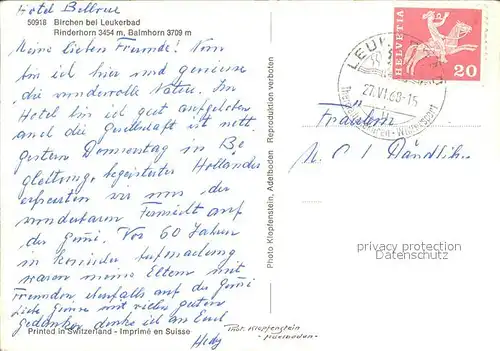 Hotel Bellvue
50918 Birchen bei Leukerbad
Rinderhorn 3454 m, Balmhorn 3709 m
Meine lieben Freunde! Nun
bin ich hier und geniesse
die wundervolle Natur. Im
Hotel bin ich gut aufgehoben
und die Gesellschaft ist nett.
gestern Donnerstag in Be
gleitung begeisterter Holländer
erfreuten wir uns der
wunderbaren Fernsicht auf
der Gemmi. Vor 60 Jahren
in Aufmachung
waren meine Eltern mit
Freunden ebenfalls auf der Gemmi
Liebe Grüsse und vielen guten
gedanken denke ich an Euch
Hedy
Printed in Switzerland - Imprimé en Suisse
Photo Klopfenstein, Adelboden Reproduktion verboten
HELVETIA
20
LEUKERBAD
27.VI.68-15
Fräulein
M. C. Dändliker
privacy protection
Datenschutz
Phot. Klopfenstein
-Adelboden-